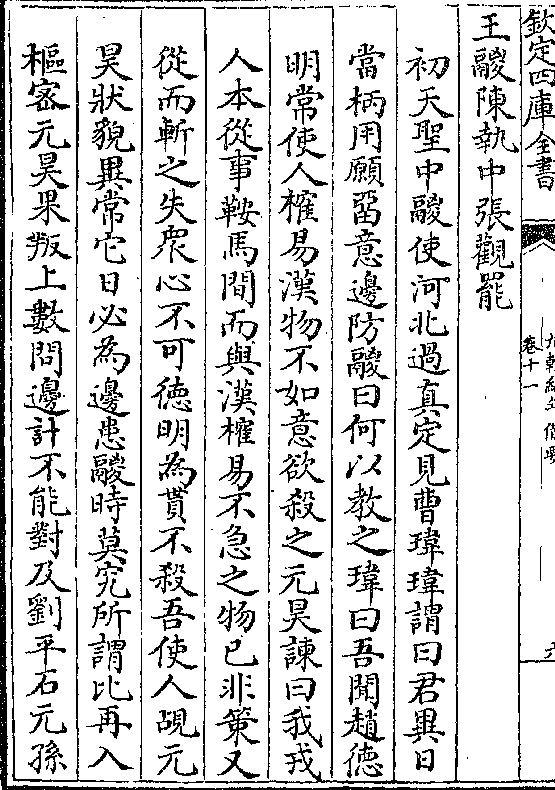 欽定四庫全書
卷十一
王鬷陳執中張觀罷
初天聖中鬷使河北過真定見曹瑋瑋謂曰君異日
當柄用願畱意邊防鬷曰何以教之瑋曰吾聞趙德
明常使人榷易漢物不如意欲殺之元昊諫曰我戎
人本從事鞍馬間而與漢榷易不急之物已非策又
從而斬之失衆心不可德明為貰不殺吾使人覘元
昊狀貌異常它日必為邊患鬷時莫究所謂比再入
樞宻元昊果叛上數問邊計不能對及劉平石元孫